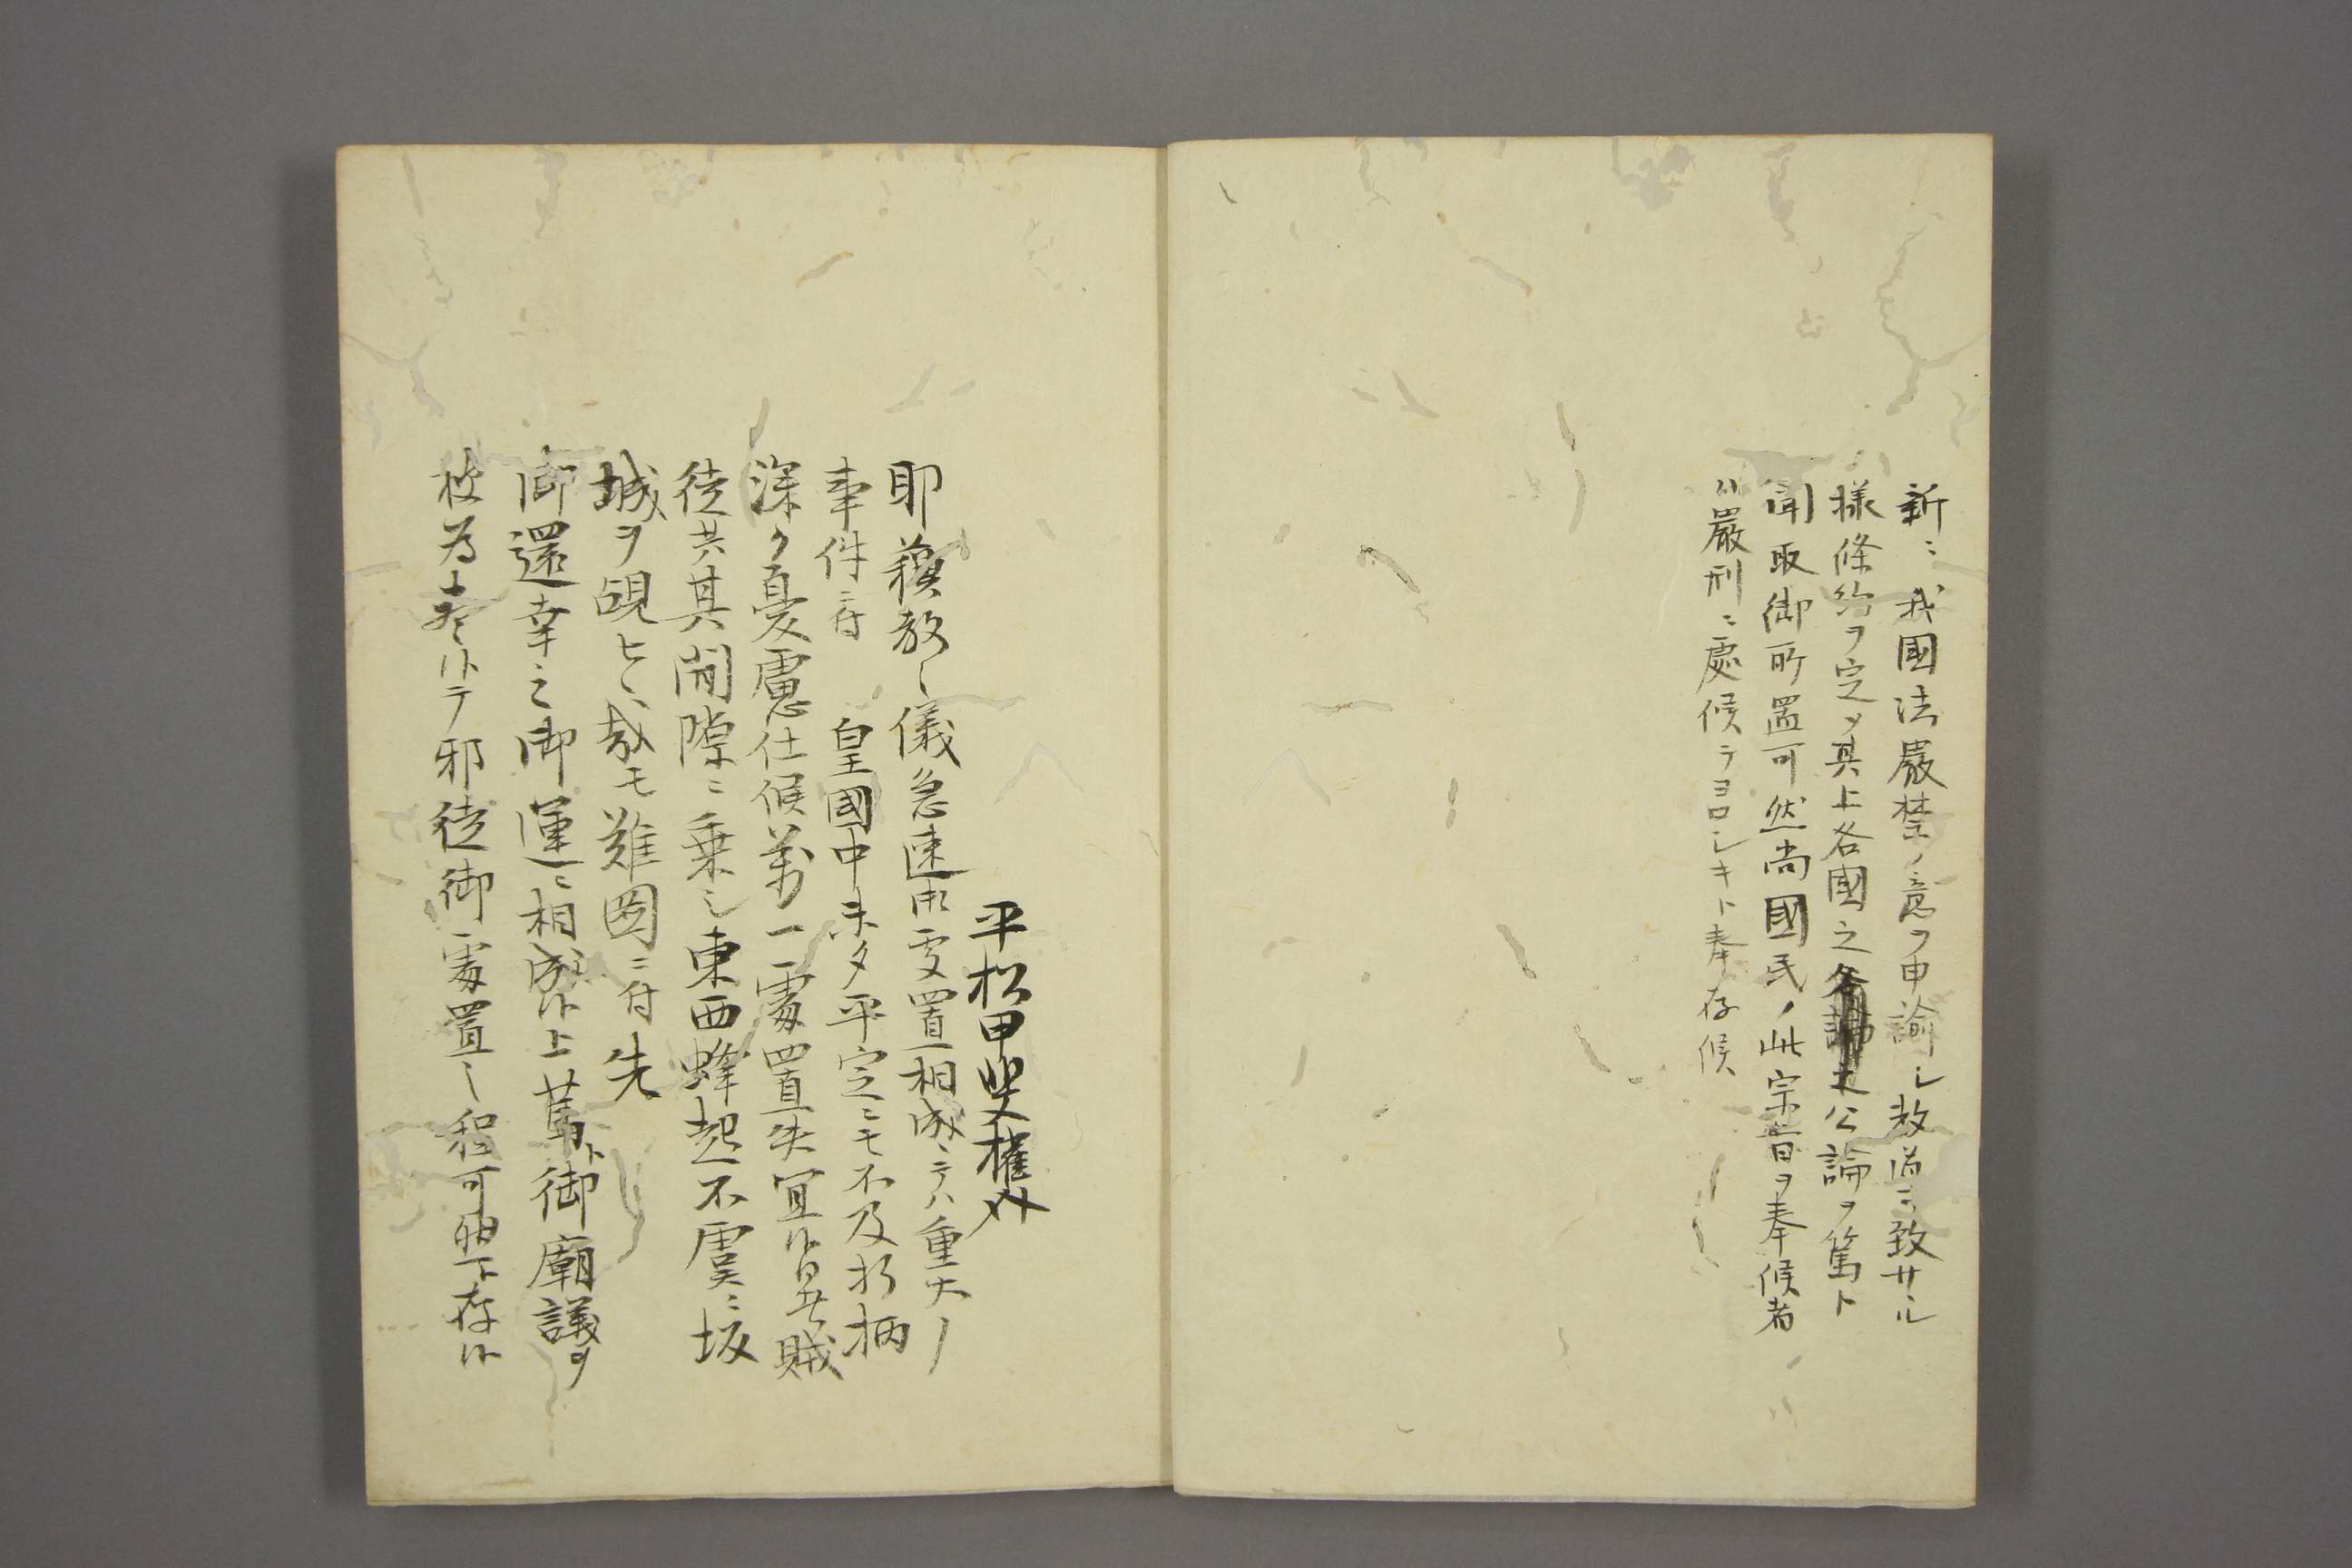 新ニ我國法嚴禁ノ意ヲ申諭シ教道ニ致サル
様條約ヲ定メ其上各國之公論ヲ篤ト
聞取御所置可然尚國民ノ此宗旨ヲ奉候者
ハ嚴刑ニ處候テヨロシキト奉存候
平松甲斐権介
耶蘓教之儀急速御處置相成候テハ重大ノ
事件ニ付 皇國中未タ平定ニモ不及折柄
深ク憂慮仕候萬一處置失宜候ハ賊
徒共其間隙ニ乗シ東西蜂起不虞ニ坂
城ヲ覬ヒ候モ難圖ニ付先
御還幸之御運ニ相成候上篤ト御廟議ヲ
被為盡候テ邪徒御處置之程可然ト存候